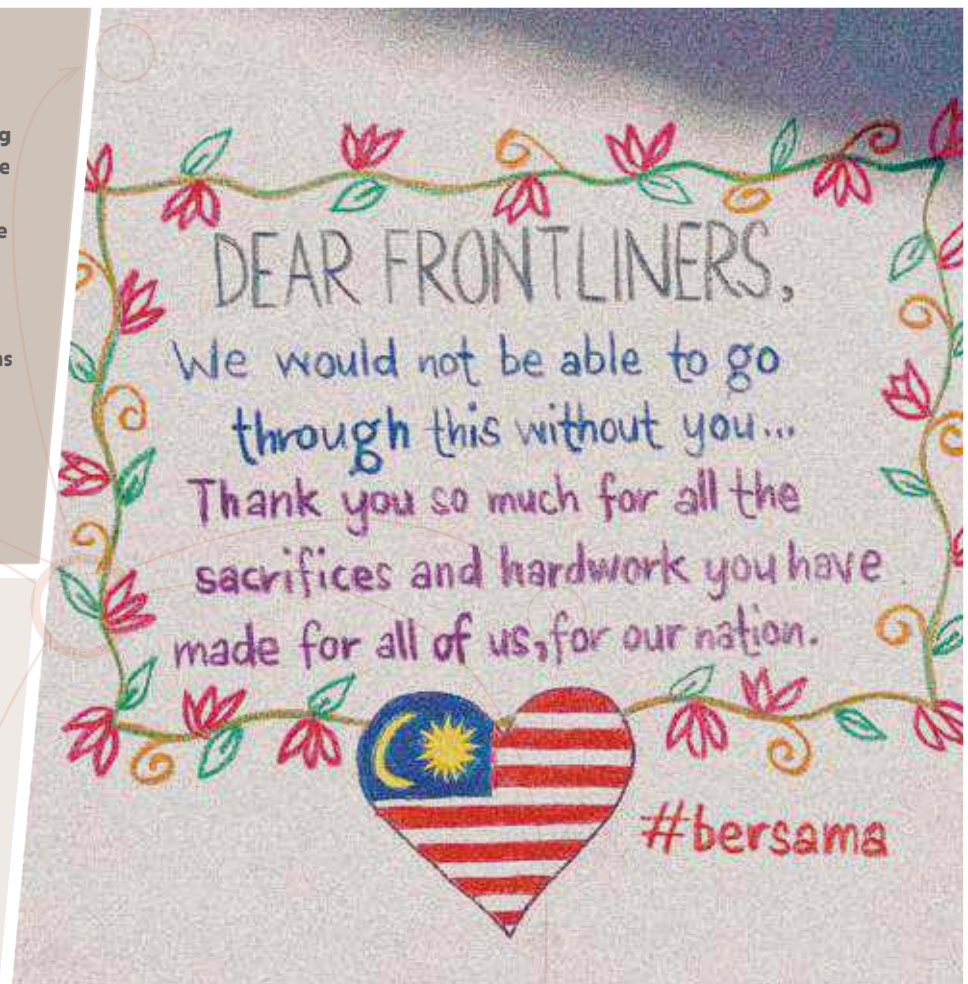 DEAR FRONTLINERS,
We would not be able to go
through this without you...
Thank you so much for all the
sacrifices and hardwork you have
made for all of us, for our nation.
#bersama